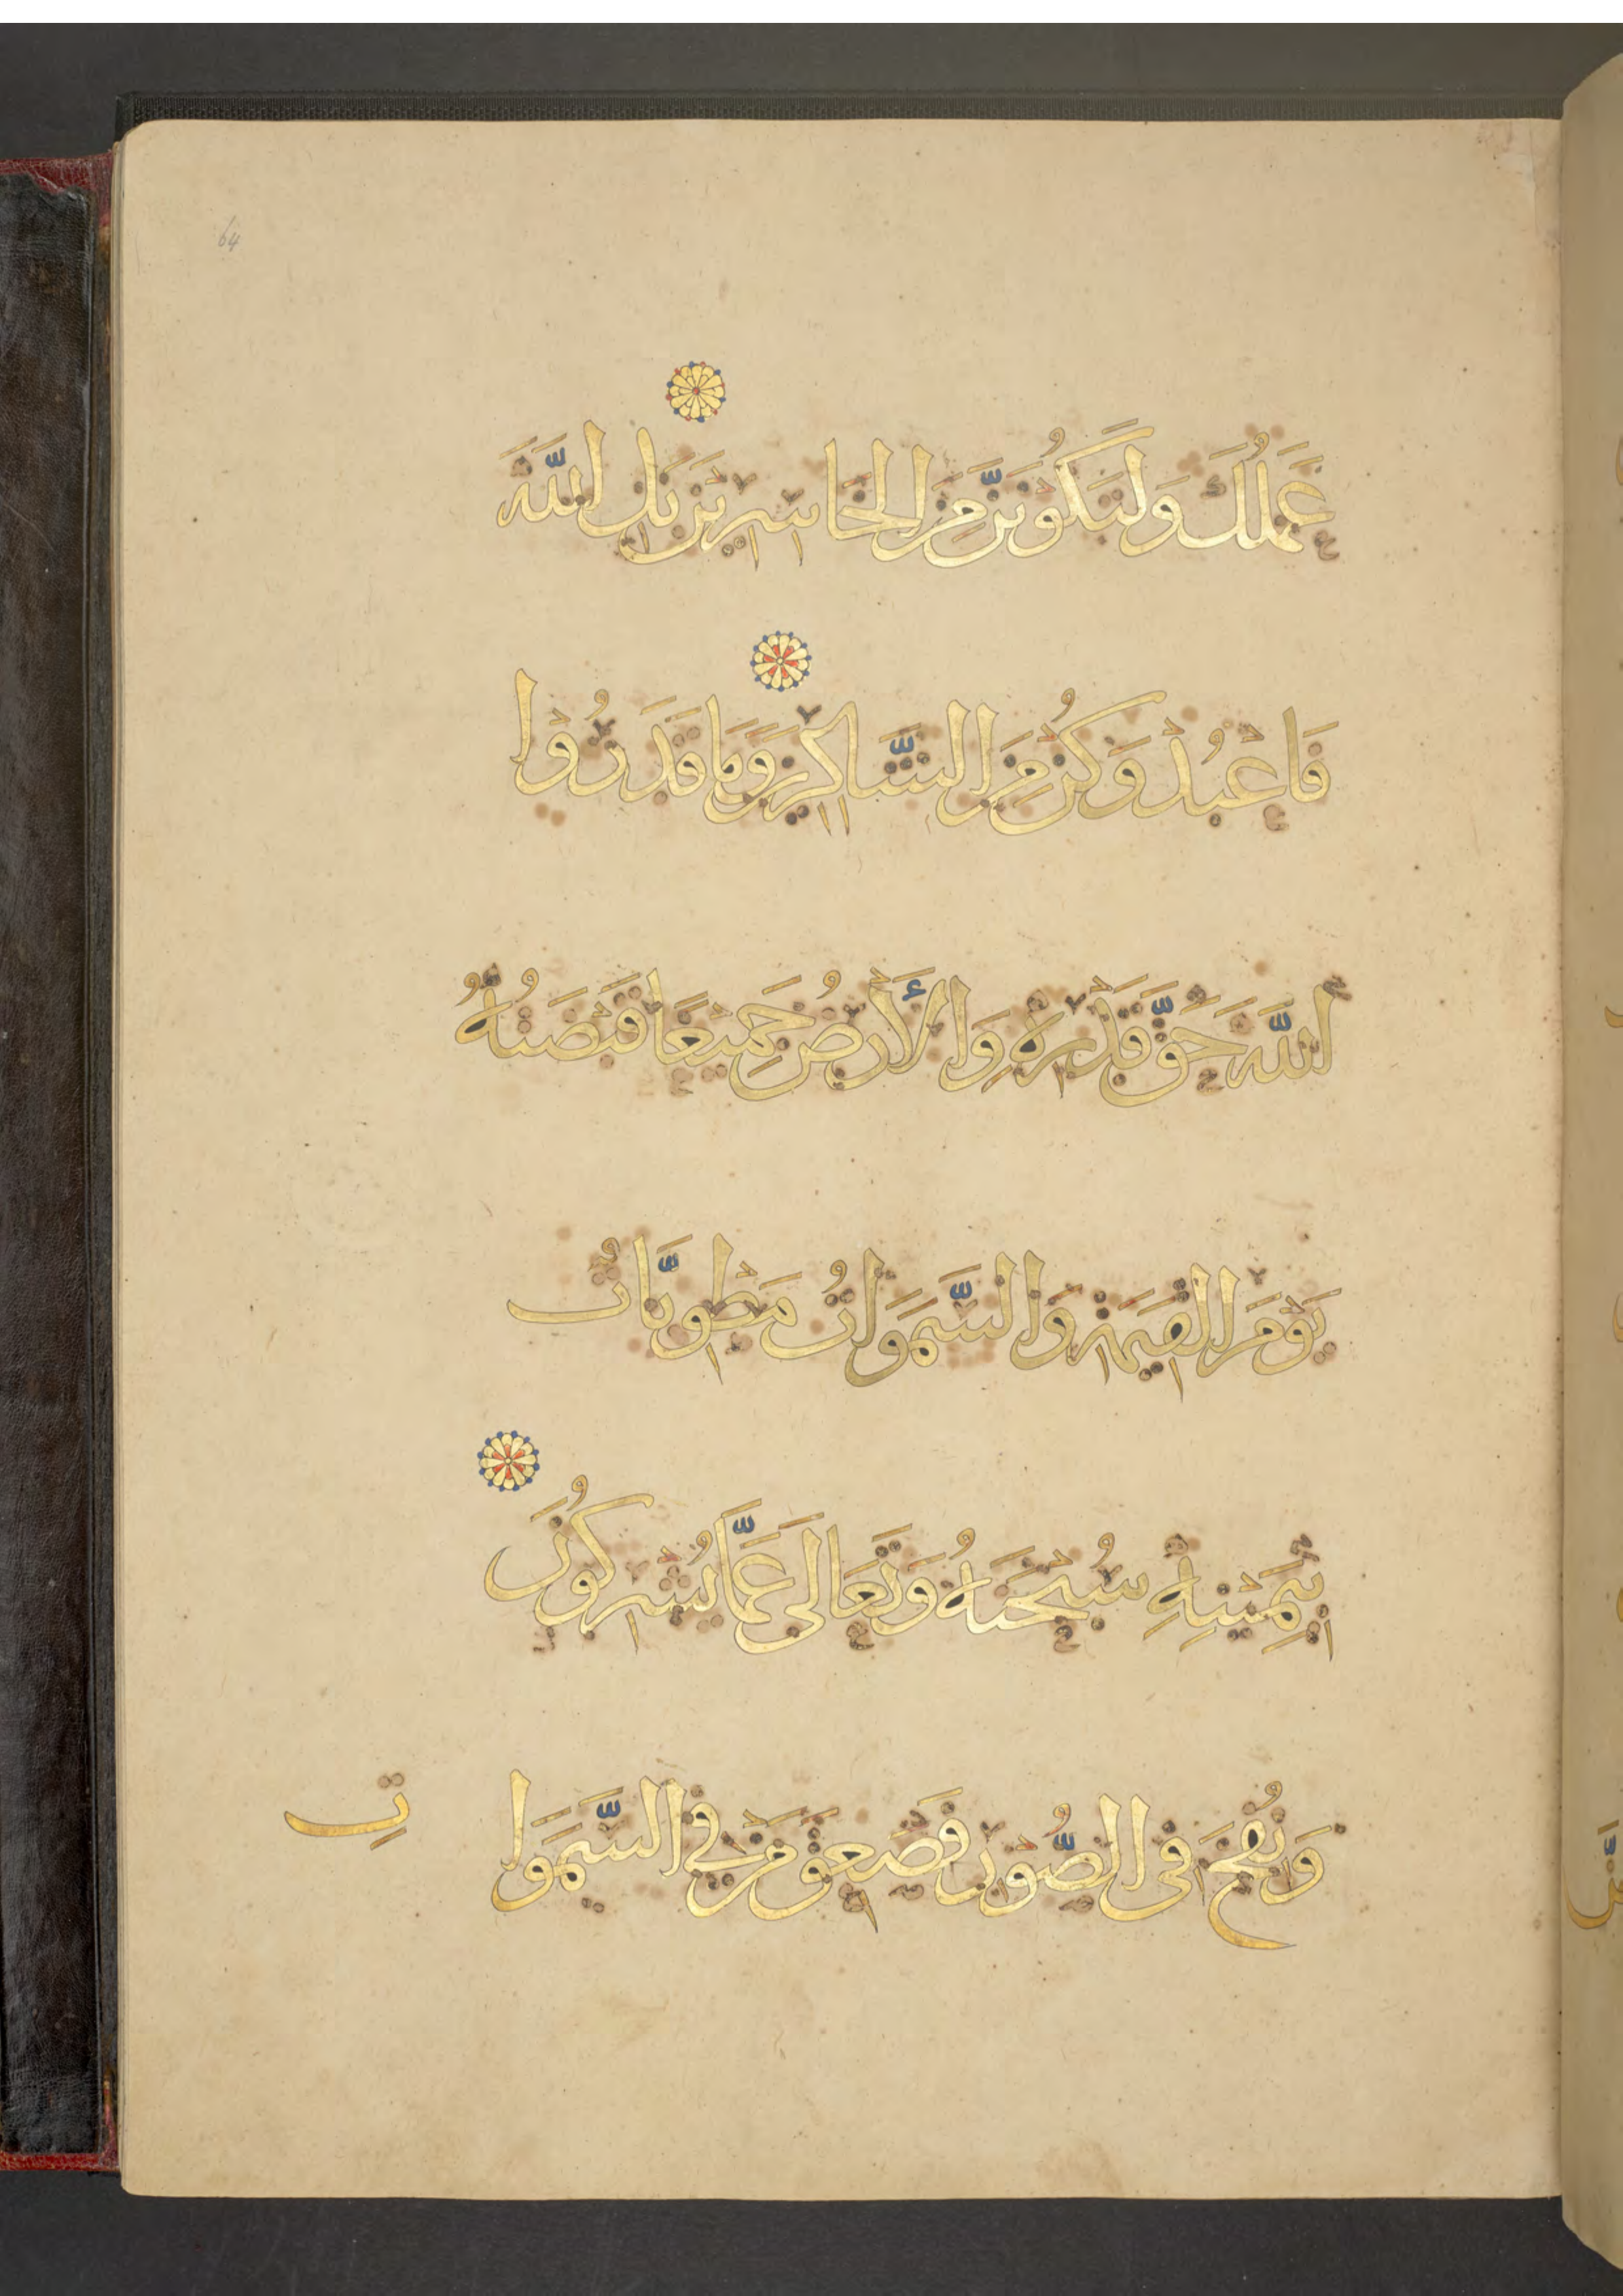 64
عَمَلُكَ وَلَتَكُوْنَنَّ مِنَ الْخَاسِرِيْنَ بَلِ اللّٰهَ
فَاعْبُدْ وَكُنْ مِنَ الشَّاكِرِيْنَ وَمَا قَدَرُوْا
اللّٰهَ حَقَّ قَدْرِهِ وَالْأَرْضُ جَمِيْعًا قَبْضَتُهُ
يَوْمَ الْقِيٰمَةِ وَالسَّمَوَاتُ مَطْوِيَّاتٌ
بِيَمِيْنِهِ سُبْحٰنَهُ وَتَعَالَى عَمَّا يُشْرِكُوْنَ
وَنُفِخَ فِى الصُّوْرِ فَصَعِقَ مَنْ فِى السَّمَوَا تِ